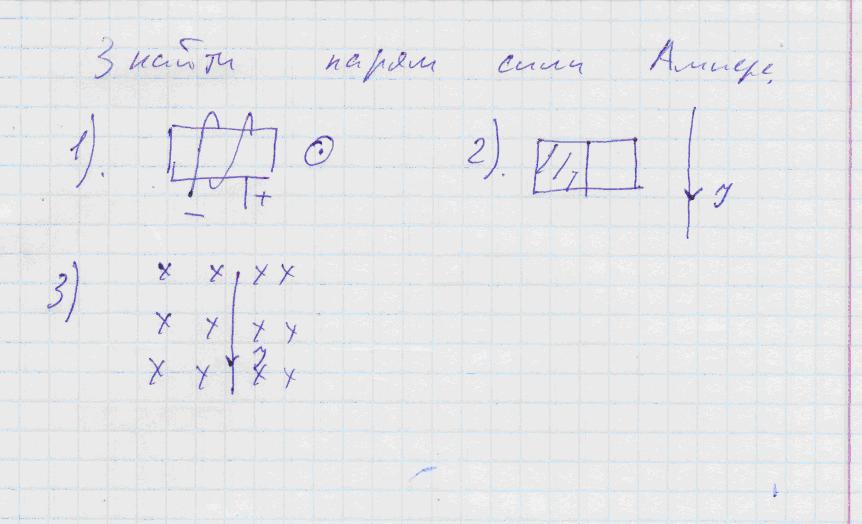 Знайти напрям сили Ампера
1). - + 2). I
3) x x x x
x x I x x
x x x x